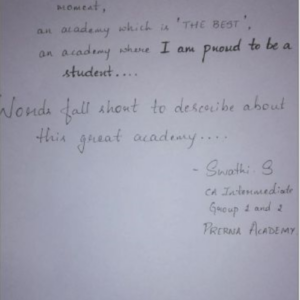 moment,
an academy which is "THE BEST",
an academy where I am proud to be a
student....
Words fall short to describe about
this great academy....
- Swathi S
CA Intermediate
Group 1 and 2
PRERNA ACADEMY